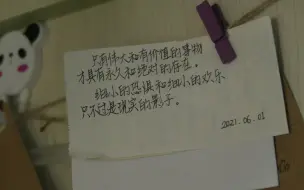 只有伟大和有价值的事物
才具有永久和绝对的存在。
细小的恐惧和细小的欢乐
只不过是现实的影子。
2021.06.01